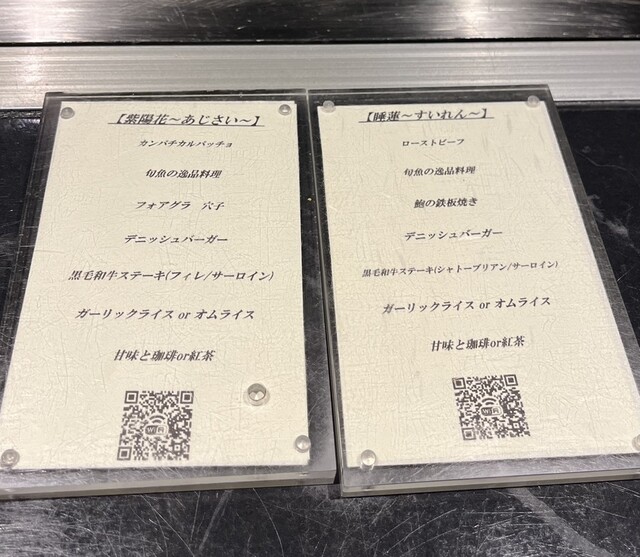 【紫陽花～あじさい～】
カンパチカルパッチョ
旬魚の逸品料理
フォアグラ　穴子
デニッシュバーガー
黒毛和牛ステーキ(フィレ/サーロイン)
ガーリックライス or オムライス
甘味と珈琲or紅茶
【睡蓮～すいれん～】
ローストビーフ
旬魚の逸品料理
鮑の鉄板焼き
デニッシュバーガー
黒毛和牛ステーキ(シャトーブリアン/サーロイン)
ガーリックライス or オムライス
甘味と珈琲or紅茶